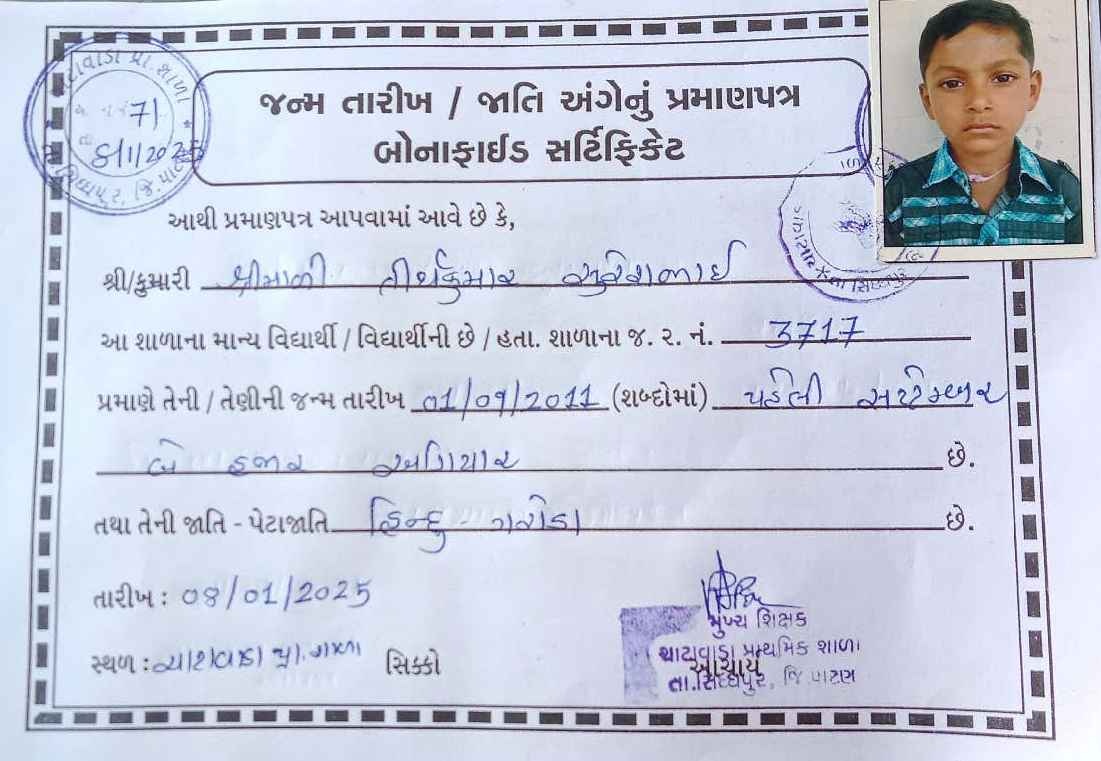 જન્મ તારીખ / જાતિ અંગેનું પ્રમાણપત્ર
બોનાફાઈડ સર્ટિફિકેટ
71
8/1/2025
આથી પ્રમાણપત્ર આપવામાં આવે છે કે,
શ્રી/કુમારી શ્રીમાળી તીર્થકુમાર સુરેશભાઈ
આ શાળાના માન્ય વિદ્યાર્થી / વિદ્યાર્થીની છે / હતા. શાળાના જ. ર. નં. 3717
પ્રમાણે તેની / તેણીની જન્મ તારીખ 01/09/2011 (શબ્દોમાં) પહેલી સપ્ટેમ્બર
બે હજાર અગિયાર છે.
તથા તેની જાતિ - પેટાજાતિ હિન્દુ - ગરોડા છે.
તારીખ : 08/01/2025
મુખ્ય શિક્ષક
સ્થળ : થાટાવાડા પ્રા. શાળા સિક્કો
પ્રાથમિક શાળા
આચાર્ય
તા.સિધ્ધપુર, જિ.પાટણ